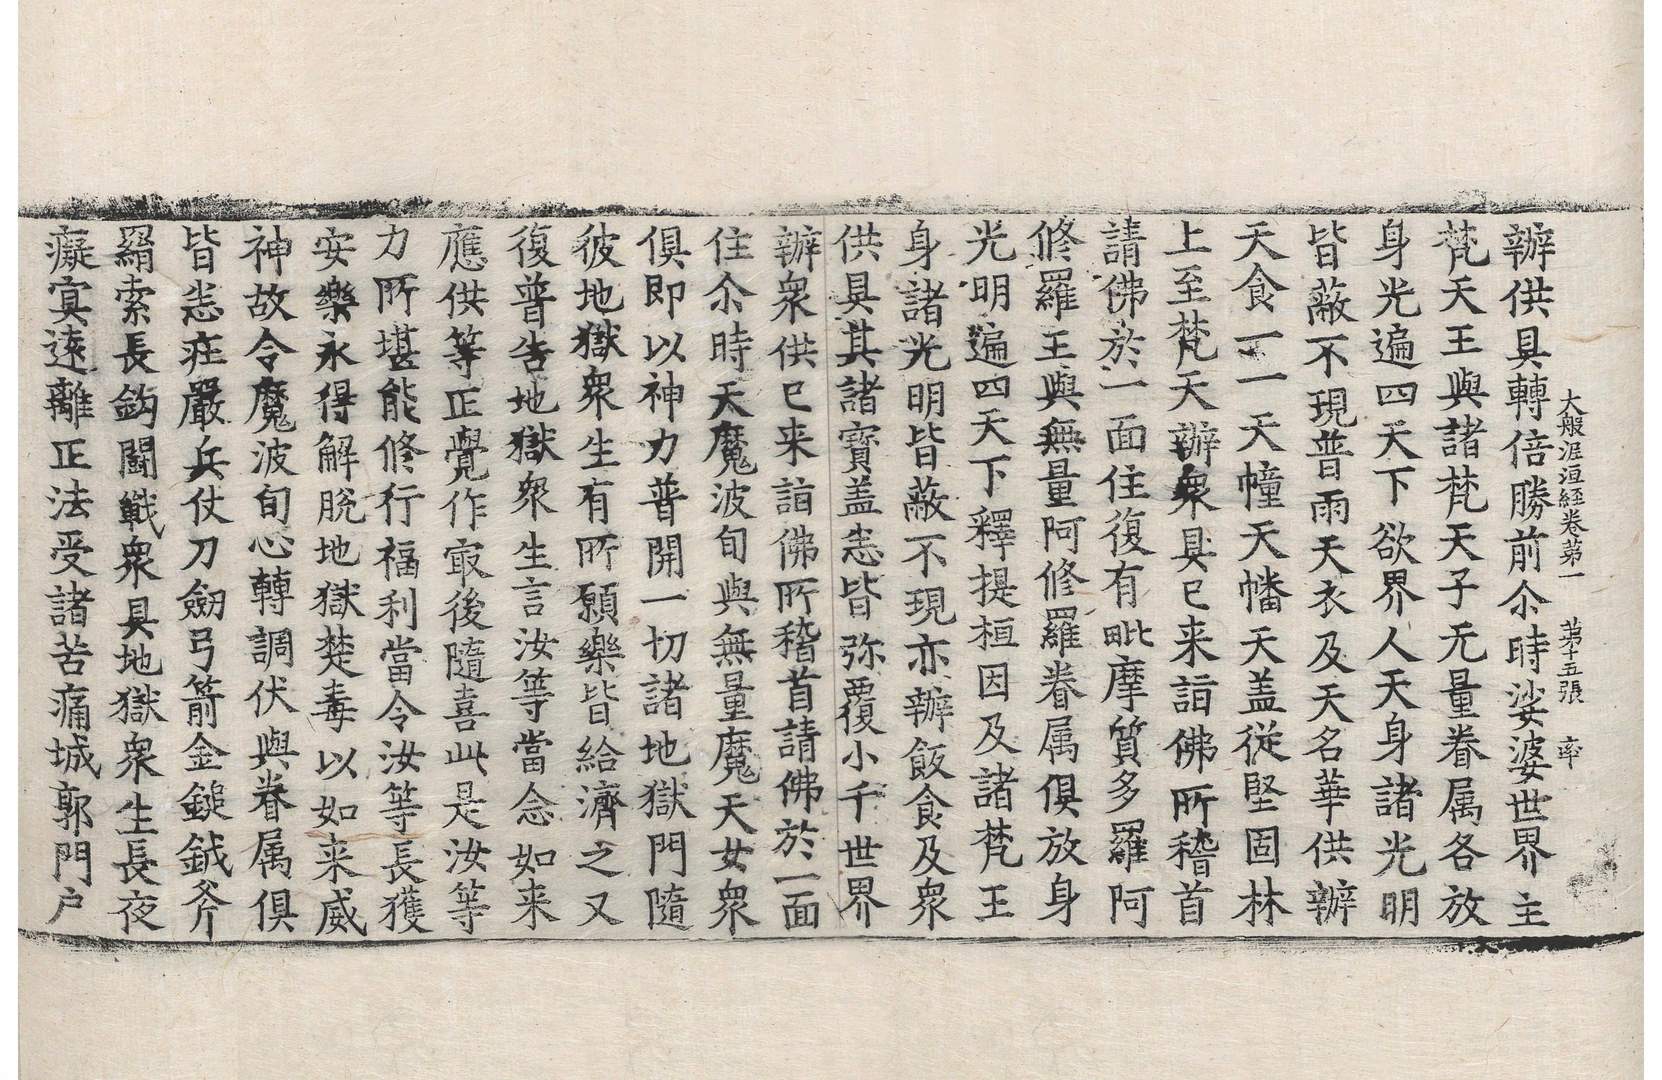 大般泥洹經卷第一　第十五張　率
辦供具轉倍勝前尒時娑婆世界主
梵天王與諸梵天子无量眷属各放
身光遍四天下欲界人天身諸光明
皆蔽不現普雨天衣及天名華供辦
天食一一天幢天幡天盖從堅固林
上至梵天辦衆具已来詣佛所稽首
請佛於一面住復有毗摩質多羅阿
修羅王與無量阿修羅眷属俱放身
光明遍四天下釋提桓因及諸梵王
身諸光明皆蔽不現亦辦飯食及衆
供具其諸寶盖悉皆弥覆小千世界
辦衆供已来詣佛所稽首請佛於一面
住尒時天魔波旬與無量魔天女衆
俱即以神力普開一切諸地獄門隨
彼地獄衆生有所願樂皆給濟之又
復普告地獄衆生言汝等當念如来
應供等正覺作冣後隨喜此是汝等
力所堪能修行福利當令汝等長獲
安樂永得解脫地獄楚毒以如来威
神故令魔波旬心轉調伏與眷属俱
皆悉莊嚴兵仗刀劒弓箭金鎚鉞斧
羂索長鈎鬪戰衆具地獄衆生長夜
癡冥遠離正法受諸苦痛城郭門户